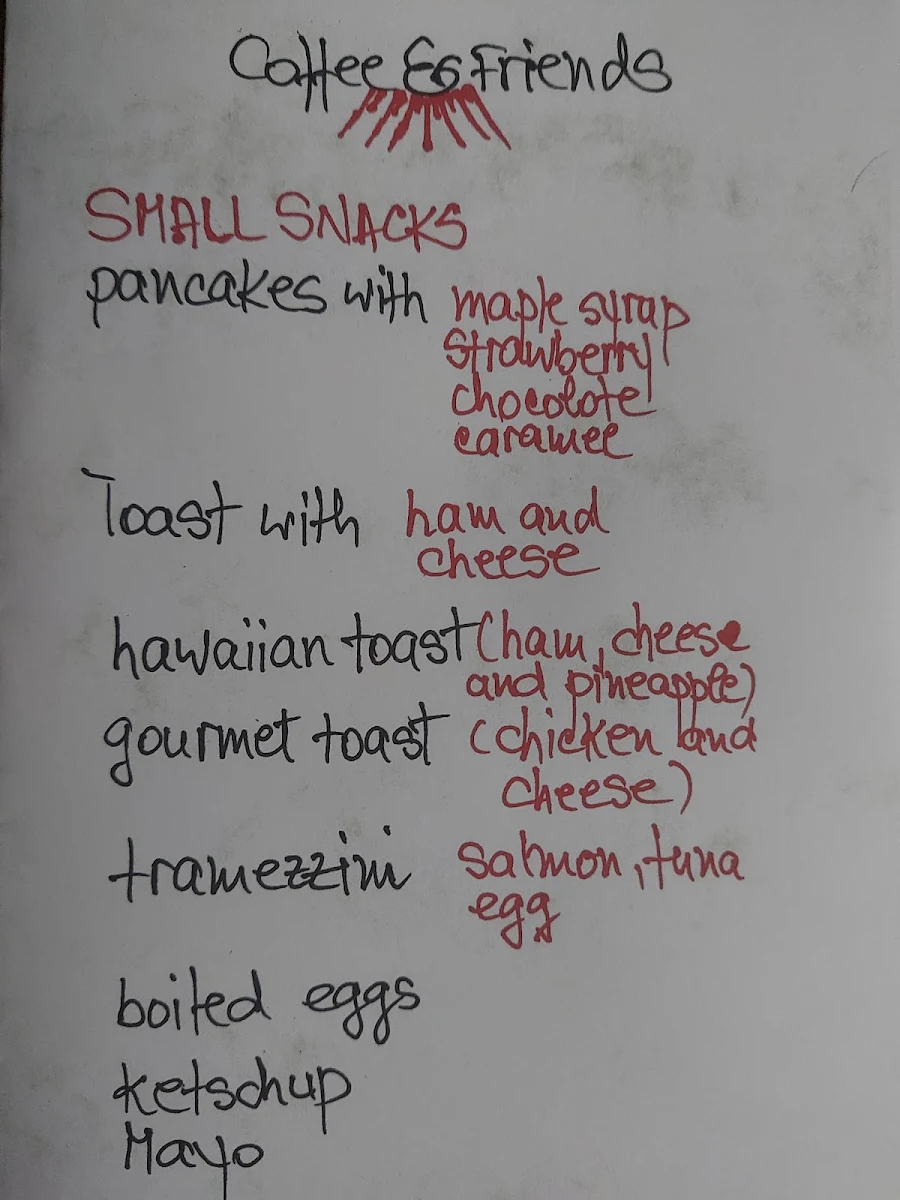 Coffee & Friends
SMALL SNACKS
pancakes with maple syrap
strawberry
chocolote
caramel
Toast with ham and
cheese
hawaiian toast (ham, cheese
and pineapple)
gourmet toast (chicken and
cheese)
tramezzini salmon, tuna
egg
boiled eggs
ketschup
Mayo